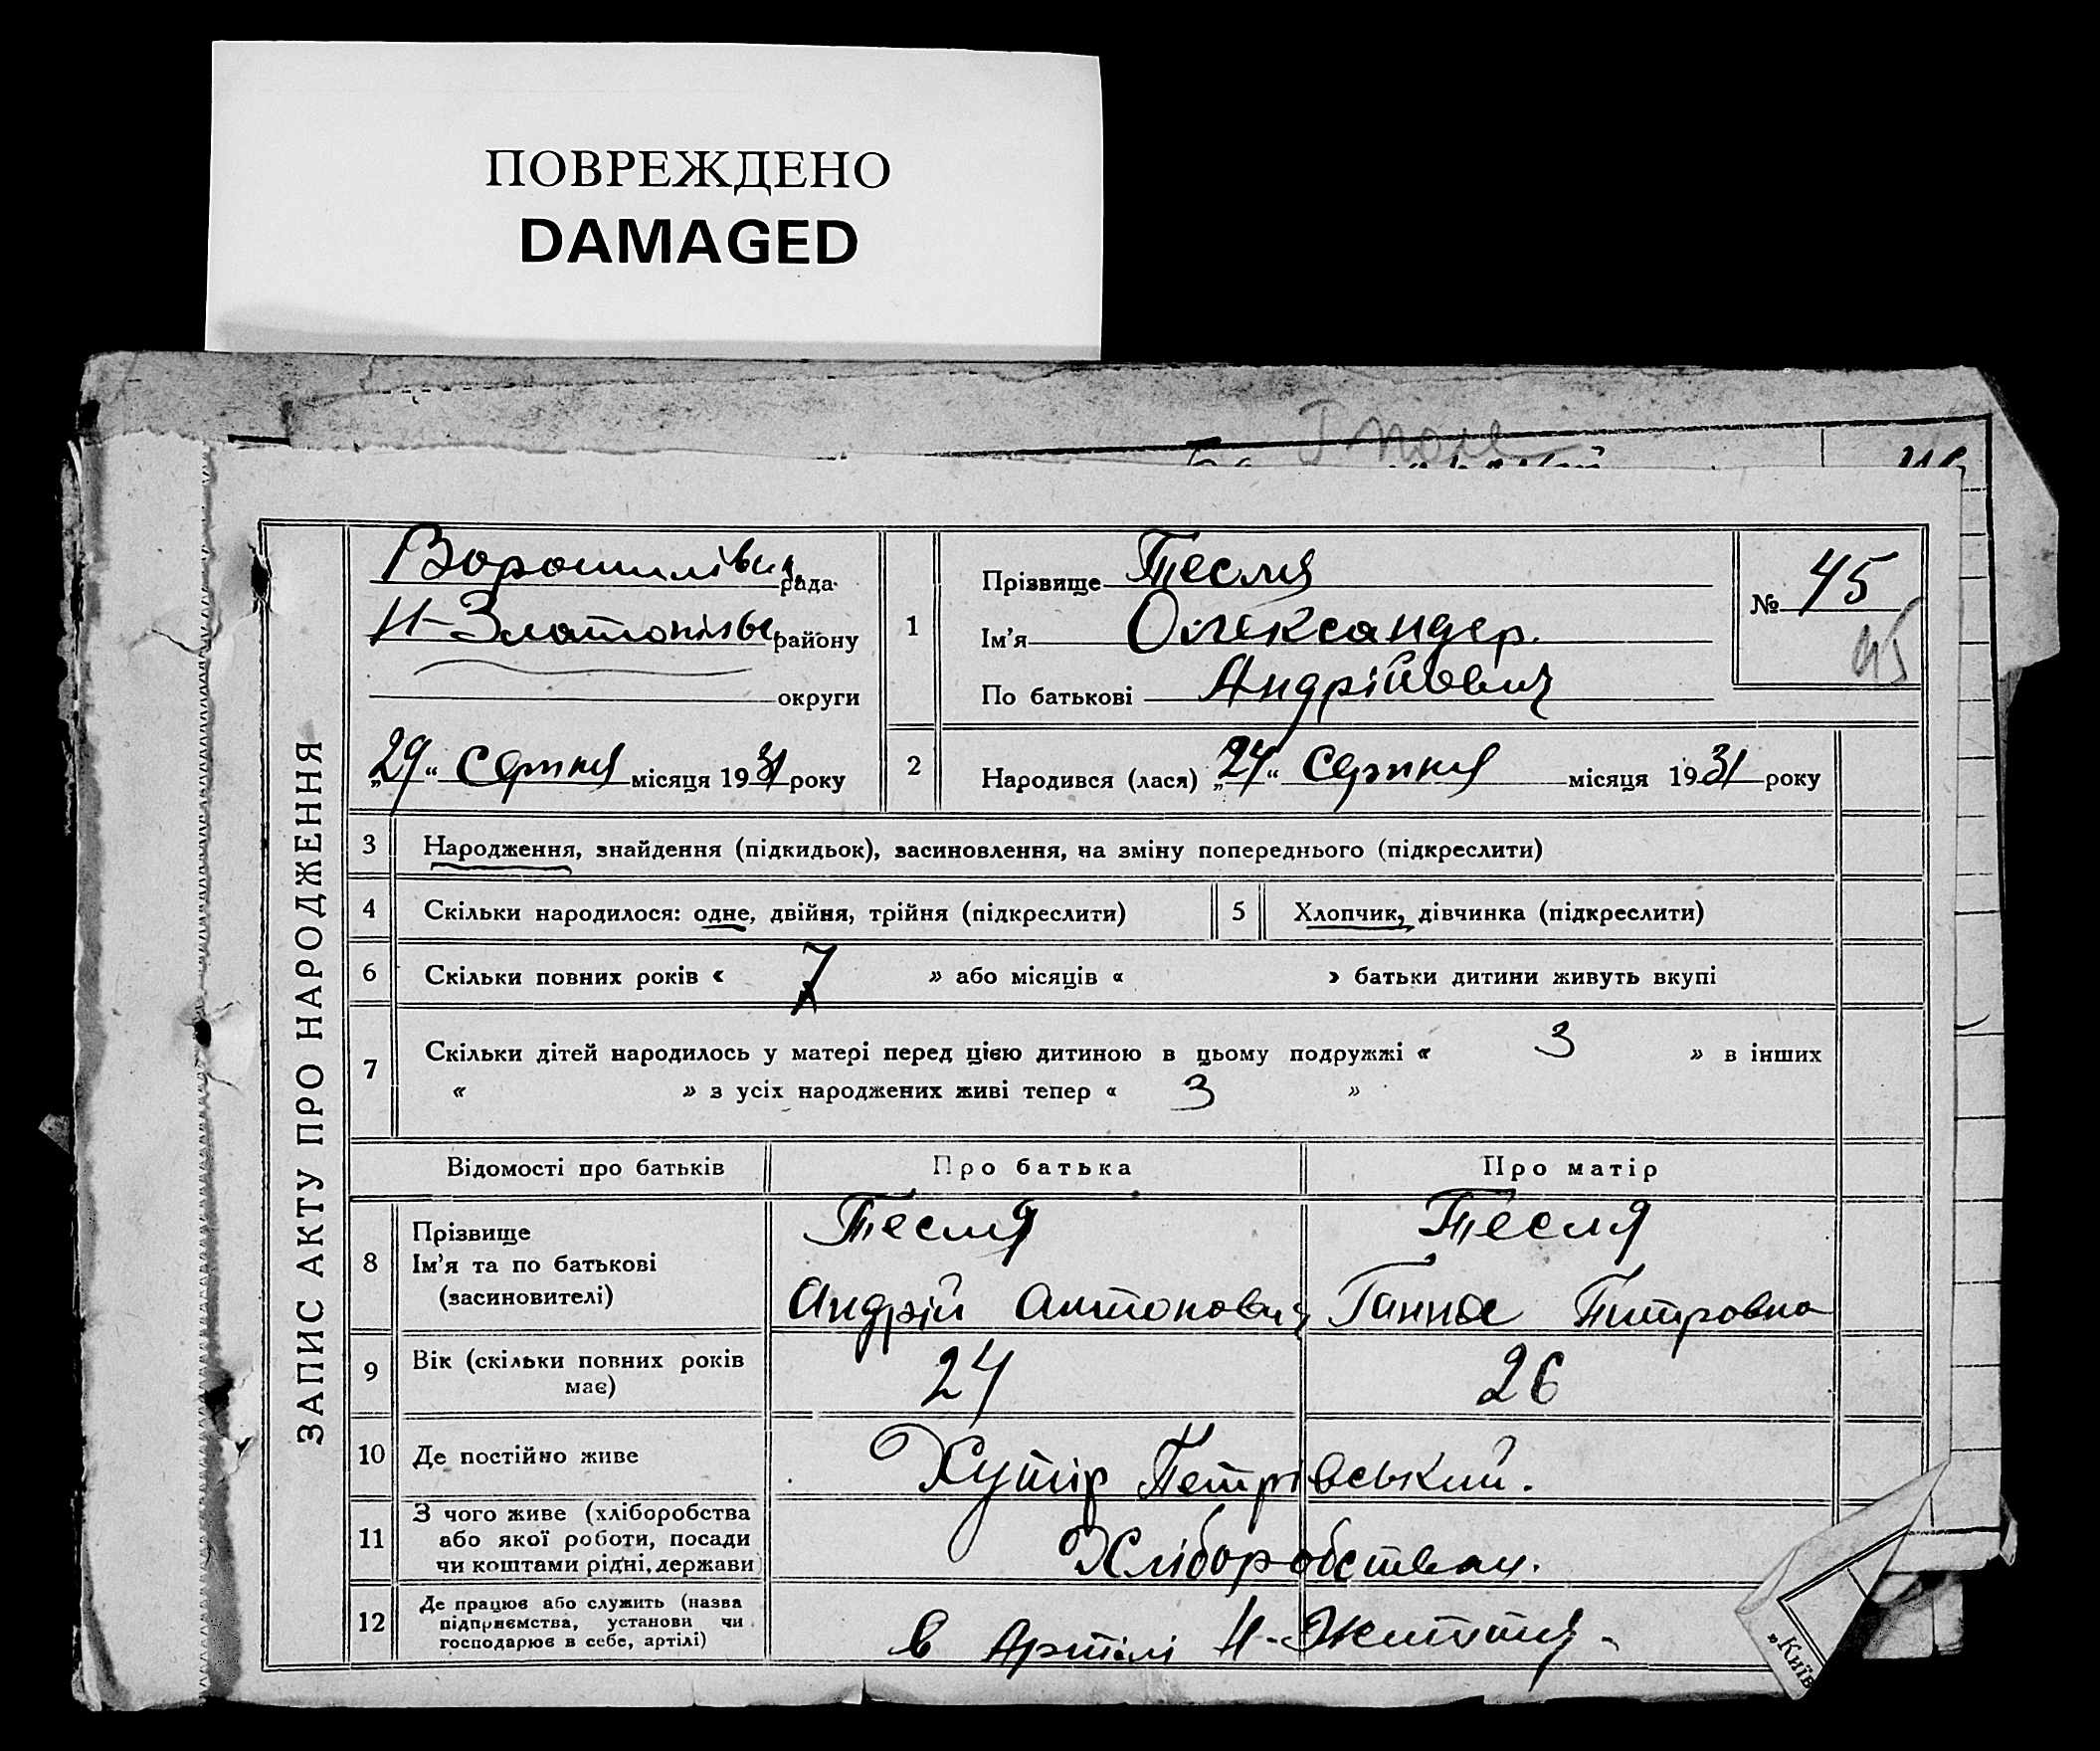 ПОВРЕЖДЕНО
DAMAGED
ЗАПИС АКТУ ПРО НАРОДЖЕННЯ
Ворошилівськ рада
Н-Златопільськ району
округи
„29“ серпня місяця 1931 року
1
Прізвище Тесля
Ім'я Олександер.
По батькові Андрійович
№ 45
45
2
Народився (лася) „24“ серпня місяця 1931 року
3 Народження, знайдення (підкидьок), засиновлення, на зміну попереднього (підкреслити)
4 Скільки народилося: одне, двійня, трійня (підкреслити)
5 Хлопчик, дівчинка (підкреслити)
6 Скільки повних років « 7 » або місяців « » батьки дитини живуть вкупі
7 Скільки дітей народилось у матері перед цією дитиною в цьому подружжі « 3 » в інших
« » з усіх народжених живі тепер « 3 »
Відомості про батьків Про батька Про матір
8 Прізвище
Ім'я та по батькові
(засиновителі)
Тесля
Андрій Антонович
Тесля
Ганна Питровна
9 Вік (скільки повних років
має)
24
26
10 Де постійно живе
Хутір Петрівський.
11 З чого живе (хліборобства
або якої роботи, посади
чи коштами рідні, держави)
Хліборобства
12 Де працює або служить (назва
підприємства, установи чи
господарює в себе, артілі)
в Артілі Н-Життя
„Київ